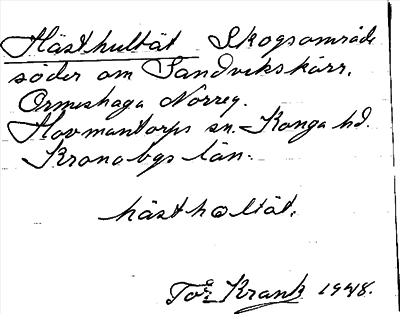 Hästhultät Skogsområde
söder om Sandvikskärr,
Ormeshaga Norreg.
Hovmantorps sn. Konga hd.
Kronobgs län.
hästholtät.
Tor Krank 1948.